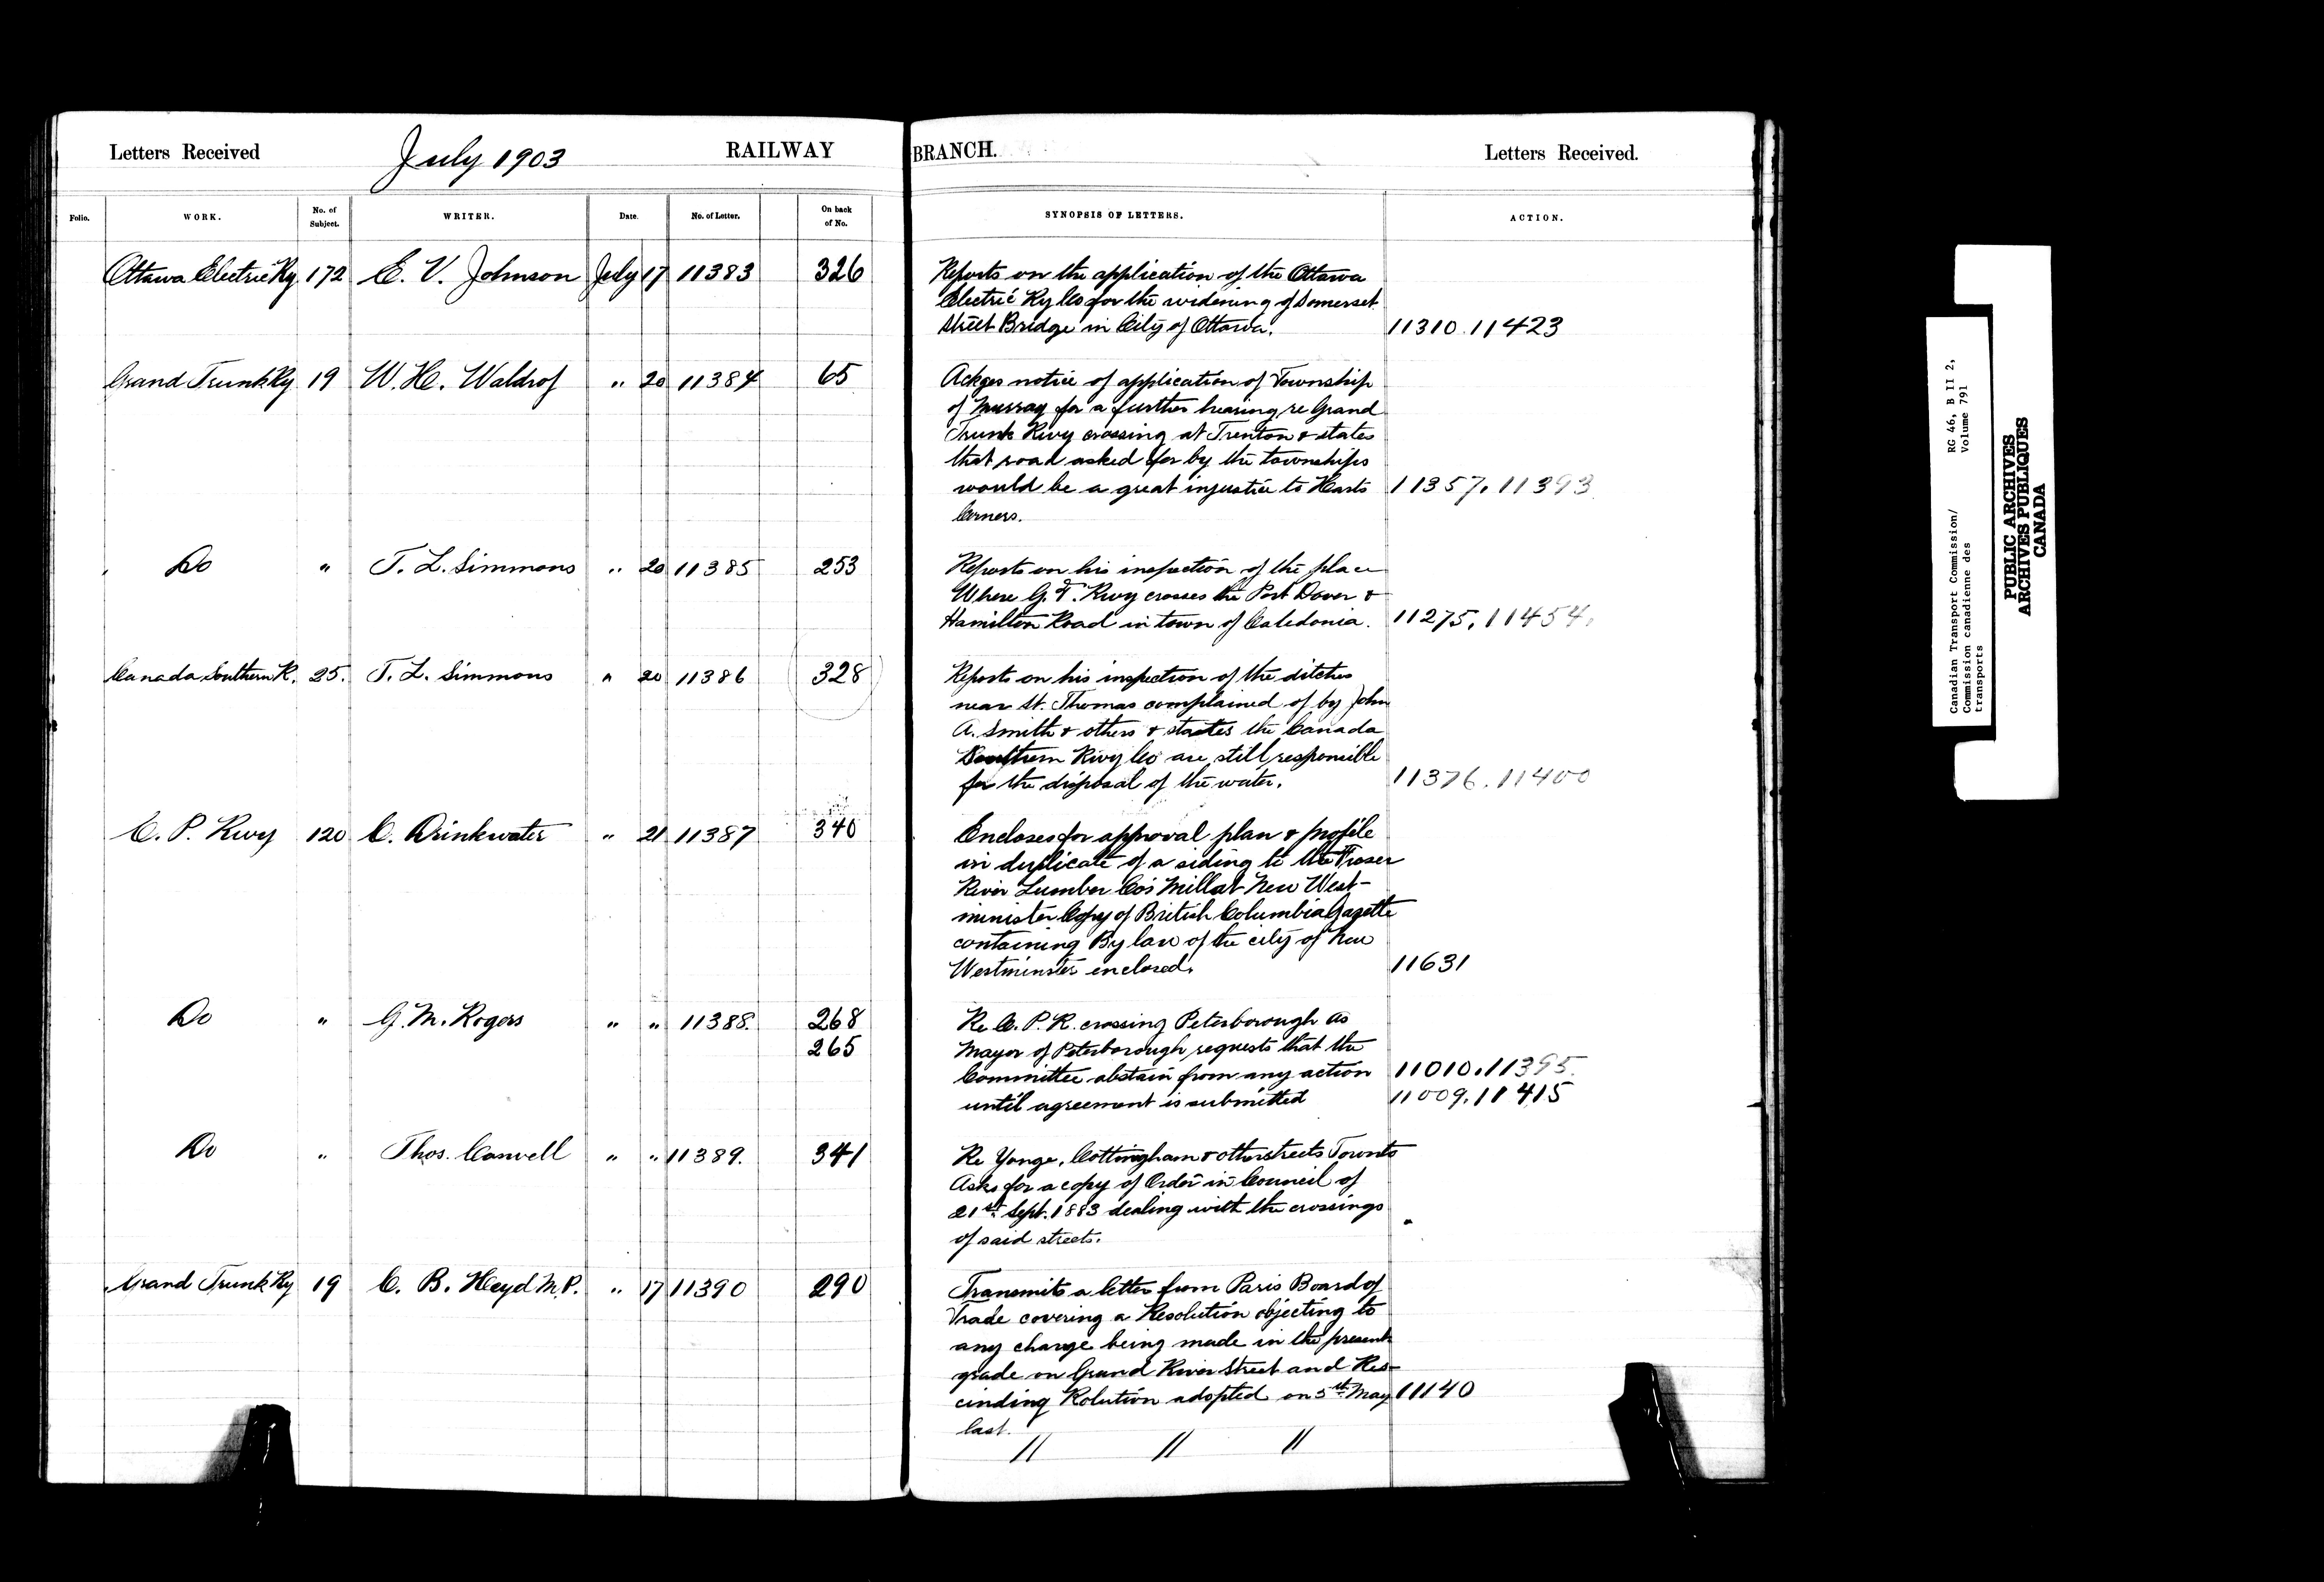 Letters Received July 1903 RAILWAY BRANCH. Letters Received.
Folio. WORK. No. of Subject. WRITER. Date. No. of Letter. On back of No. SYNOPSIS OF LETTERS. ACTION.
Ottawa Electric Ry 172 E. V. Johnson July 17 11383 326 Reports on the application of the Ottawa
Electric Ry Co for the widening of Somerset
Street Bridge in City of Ottawa. 11310.11423
Grand Trunk Ry 19 W. H. Waldrof " 20 11384 65 Ackges notice of application of Township
of Murray for a further hearing re Grand
Trunk Rwy crossing at Trenton & states
that road asked for by the townships
would be a great injustice to Harts 11357.11393
Corners.
Do " T. L. Simmons " 20 11385 253 Reports on his inspection of the place
Where G.T. Rwy crosses the Port Dover &
Hamilton Road in town of Caledonia. 11275.11454.
Canada Southern R. 25. T. L. Simmons " 20 11386 328 Reports on his inspection of the ditches
near St. Thomas complained of by John
A. Smith & others & states the Canada
Southern Rwy Co are still responsible
for the disposal of the water. 11376.11400
C. P. Rwy 120 C. Drinkwater " 21 11387 340 Encloses for approval plan & profile
in duplicate of a siding to the Fraser
River Lumber Co's Mill at New West-
minister Copy of British Columbia Gazette
containing By law of the city of New
Westminster enclosed. 11631
Do " G. M. Rogers " " 11388. 268 Re C. P. R. crossing Peterborough as
265 Mayor of Peterborough requests that the
Committee abstain from any action 11010.11395.
until agreement is submitted 11009.11415
Do " Thos. " " 11389. 341 Re Yonge, Cottingham & other streets Toronto
Asks for a copy of Order in Council of
21st Sept. 1883 dealing with the crossings
of said streets.
Grand Trunk Ry 19 C. B. Heyd M.P. " 17 11390 290 Transmits a letter from Paris Board of
Trade covering a Resolution objecting to
any change being made in the present
grade on Grand River Street and Res-
cinding Rolution adopted on 5th May 11140
last.
" " "
Canadian Transport Commission/ RG 46, B II 2,
Commission canadienne des Volume 791
transports
PUBLIC ARCHIVES
ARCHIVES PUBLIQUES
CANADA